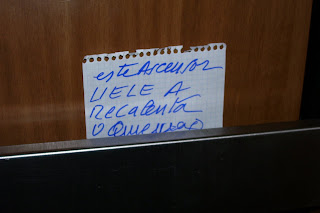 este Ascensor
UELE A
Recalenta
o Quemado